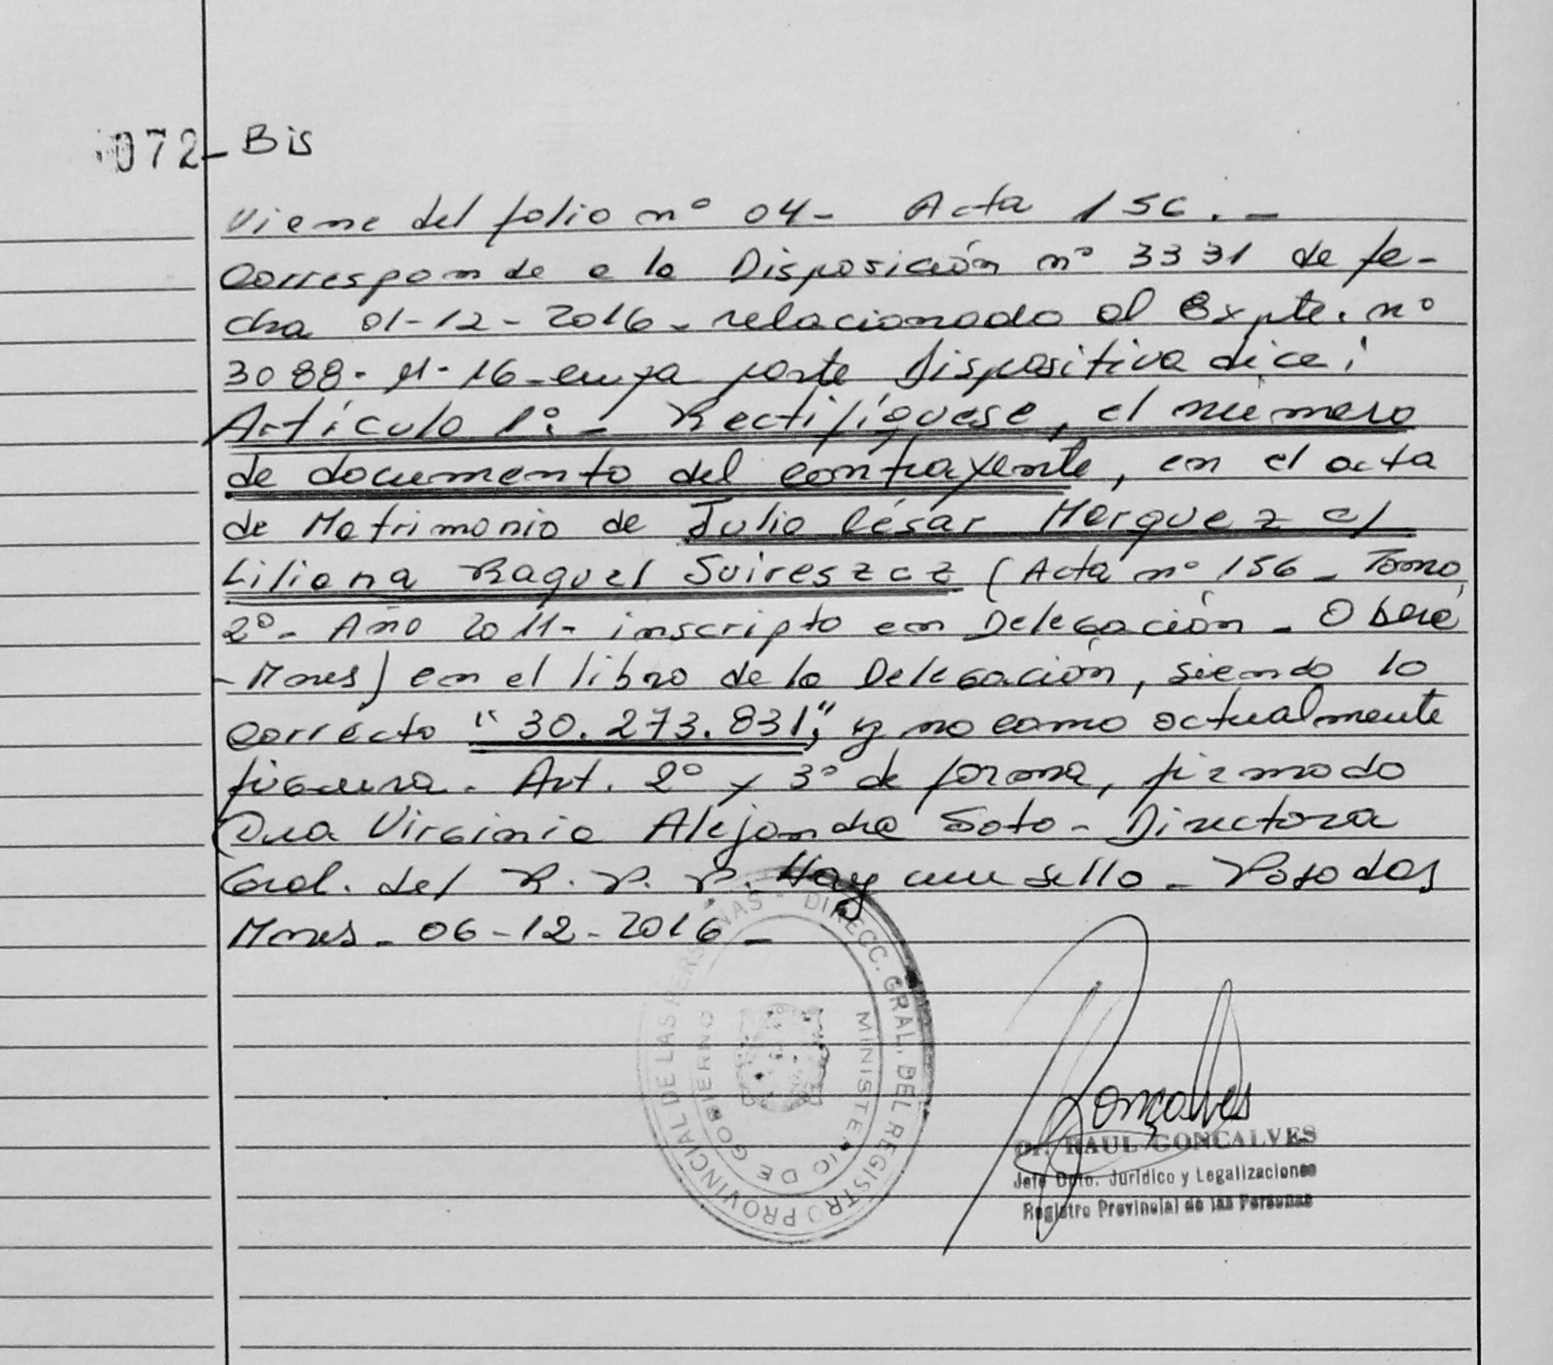 072 - Bis
Viene del folio nº 04 - Acta 156. -
Corresponde a la Disposición nº 3331 de fe-
cha 01-12-2016 - relacionado al Expte. nº
3088- -16 - cuya parte Dispositiva dice:
Artículo 1º: - Rectifíquese, el número
de documento del contrayente, en el acta
de Matrimonio de Julio César Marquez c/
Liliana Raquel (Acta nº 156 - Tomo
2º - Año 2011 - inscripto en Delegación - Oberá
- Mnes) en el libro de la Delegación, siendo lo
correcto "30.273.831", y no como actualmente
figura. Art. 2º y 3º de forma, firmado
Dra Virginia Alejandra Soto - Directora
Gral. del R. P. P. Hay un sello - Posadas
Mnes - 06-12-2016 -
DIRECC. GRAL. DEL REGISTRO PROVINCIAL DE LAS PERSONAS -
MINISTERIO DE GOBIERNO
Gonçalves
Dr. RAUL GONCALVES
Jefe Dpto. Jurídico y Legalizaciones
Registro Provincial de las Personas